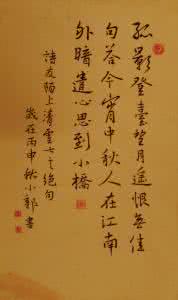 孤影登臺望月遥恨無佳
句答今宵中秋人在江南
外暗遣心思到小橋
詩友陌上清雲七之絶句
歲在丙申秋小郭書